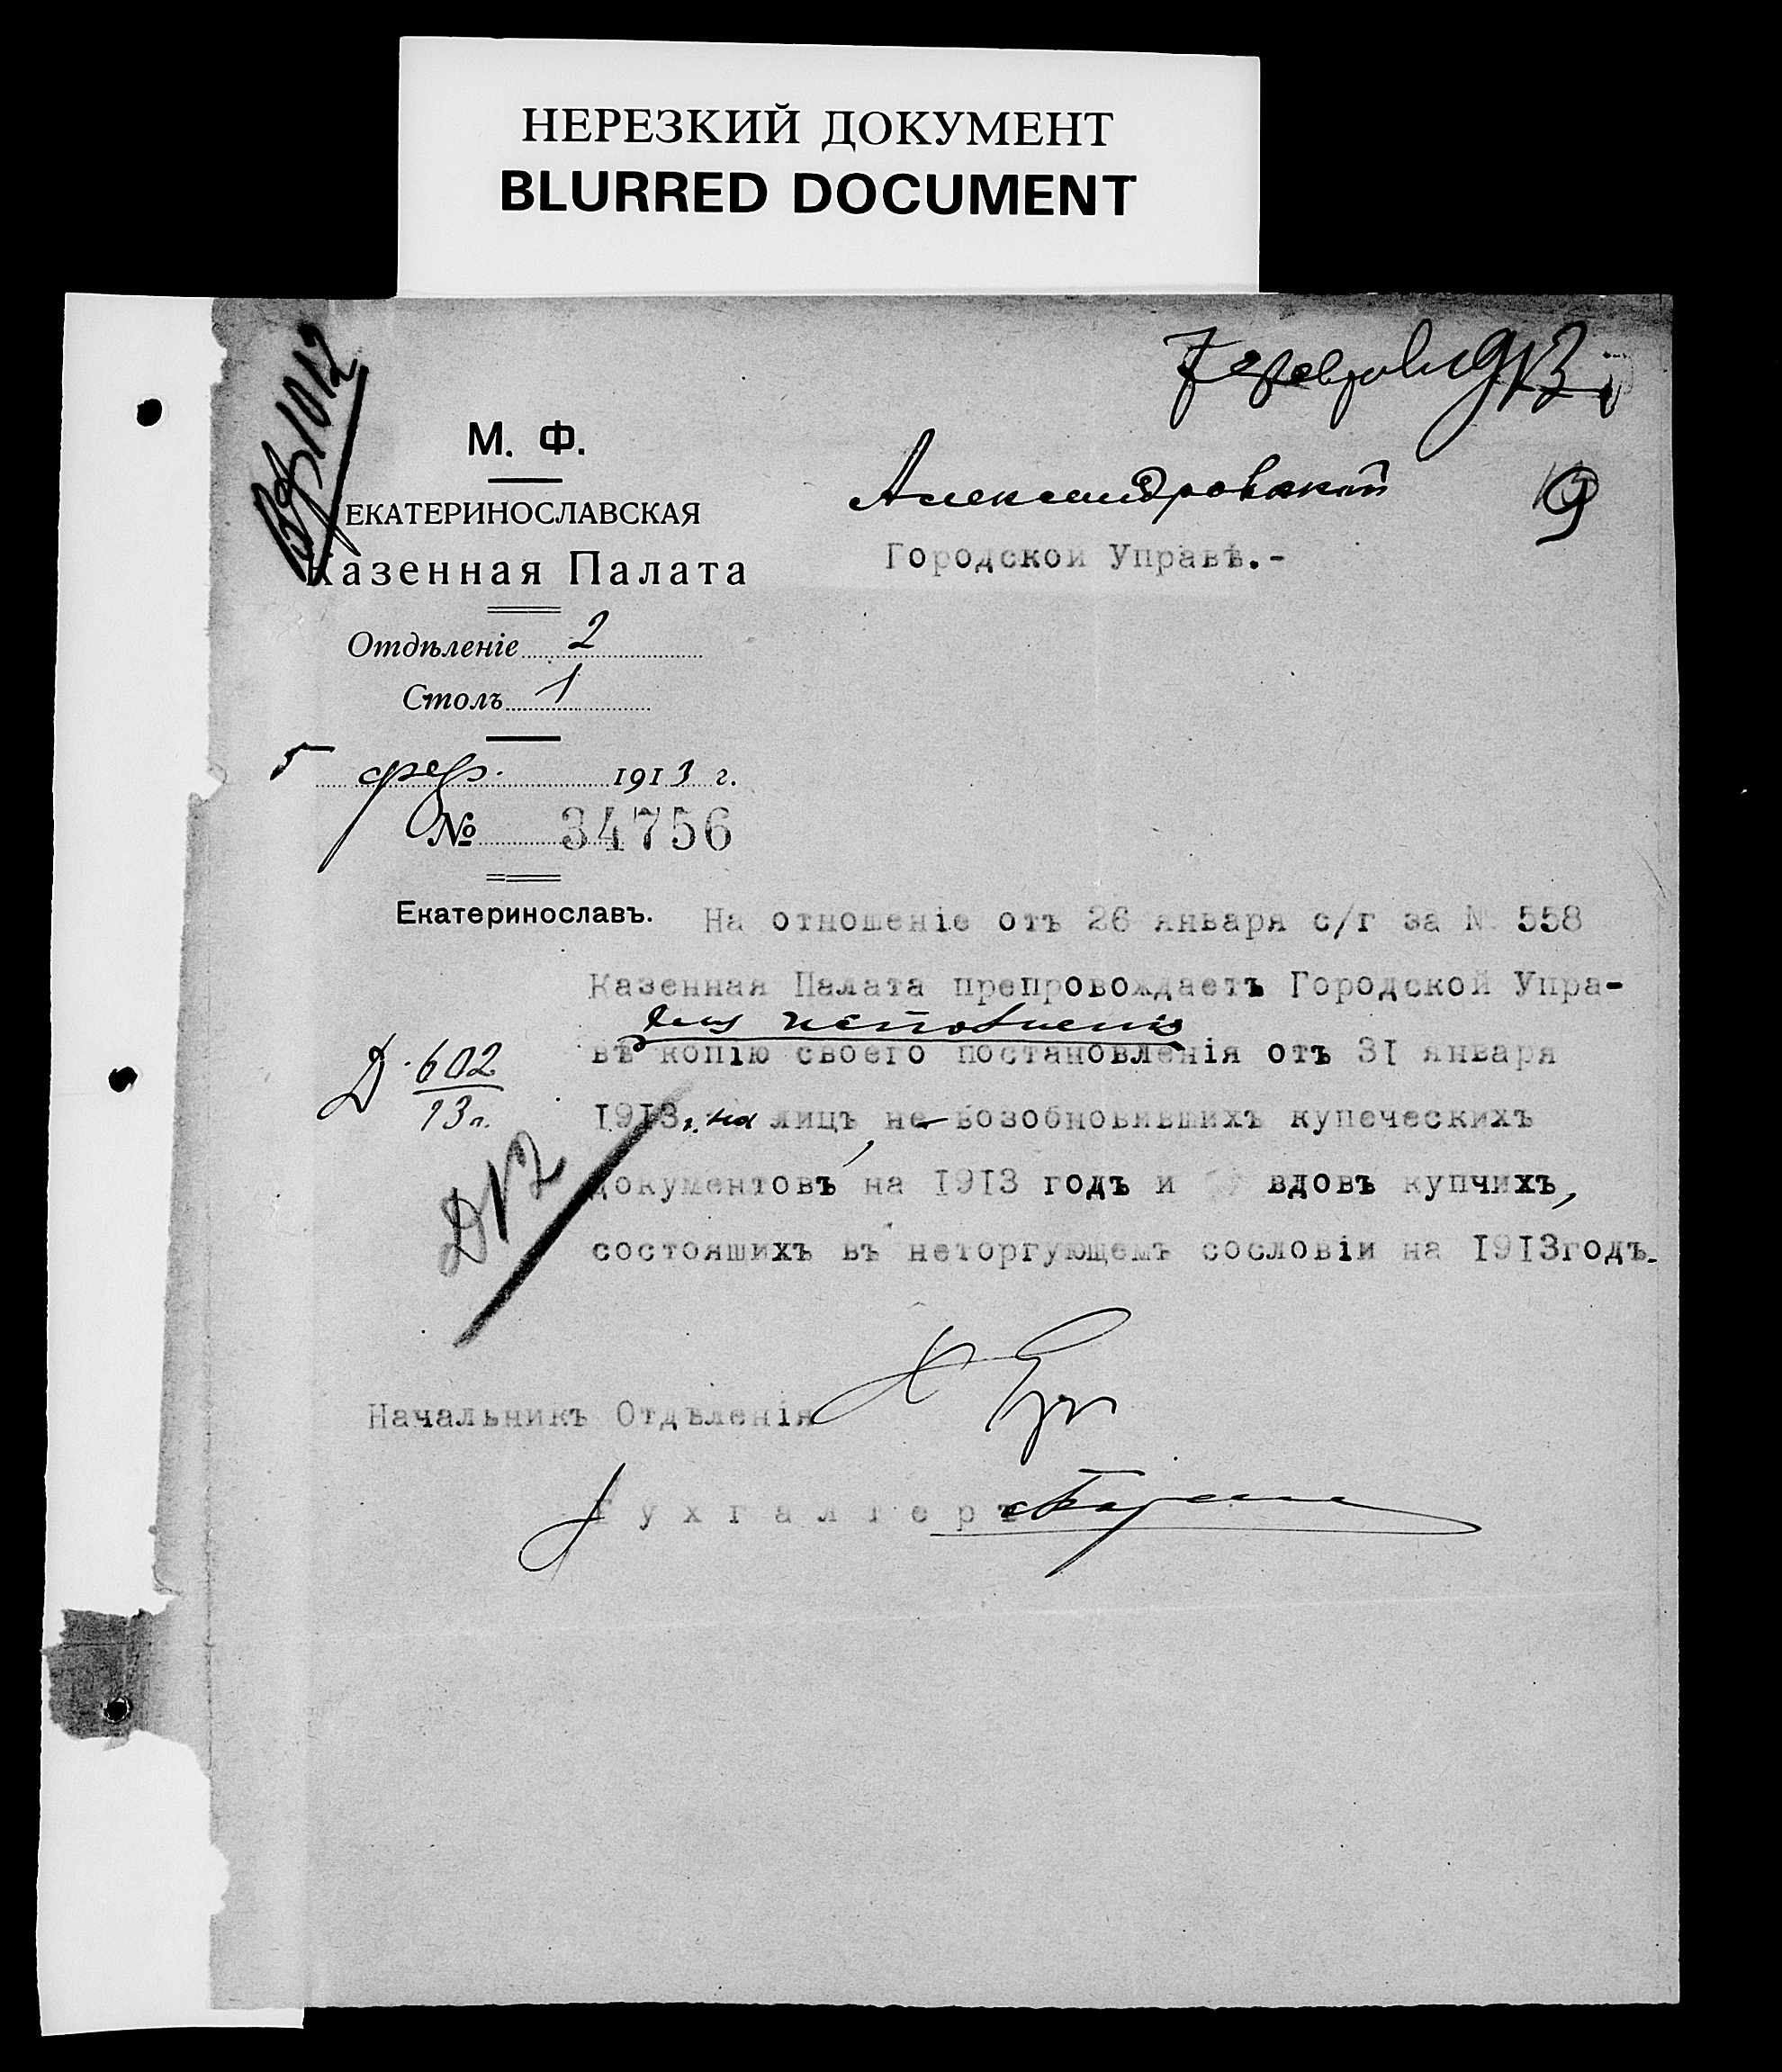 НЕРЕЗКИЙ ДОКУМЕНТ
BLURRED DOCUMENT
7 февраля 913
М. Ф.
ЕКАТЕРИНОСЛАВСКАЯ
Казенная Палата
Отдѣленіе 2
Столъ 1
5 фев. 1913 г.
№ 34756
Екатеринославъ.
Вх 1012
Александровской
Городской Управѣ.-
9
На отношеніе отъ 26 января с/г за № 558
Казенная Палата препровождаетъ Городской Упра-
для исполненія
вѣ копію своего постановленія отъ 31 января
1913 г. на лицъ, не возобновившихъ купеческихъ
документовъ на 1913 годъ и вдовъ купчихъ,
состояшихъ въ неторгующемъ сословіи на 1913годъ.
Д. 602
13 г.
Д 12
Начальникъ Отдѣленія
Бухгалтеръ